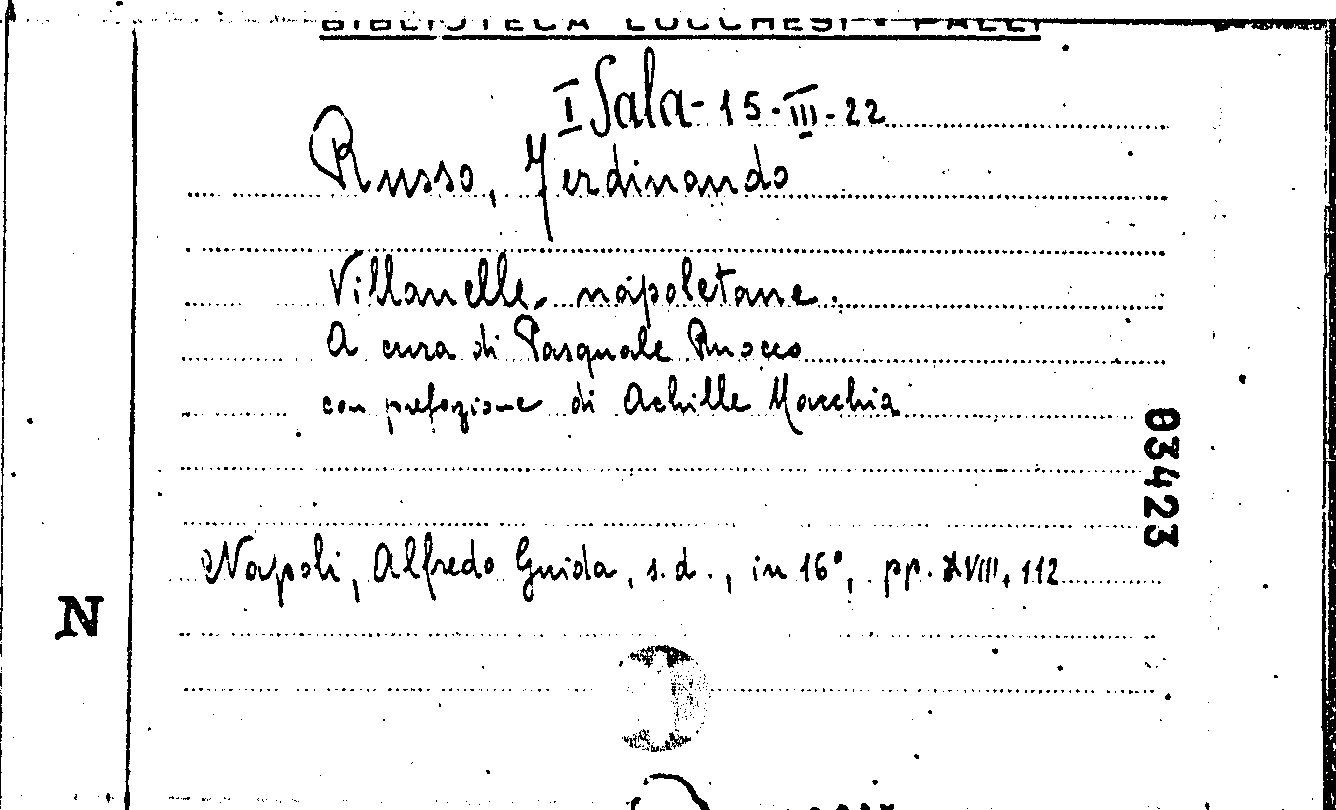 BIBLIOTECA LUCCHESI - PALLI
I Sala - 15-III-22
Russo, Ferdinando
Villanelle napoletane.
A cura di Pasquale Ruocco
con prefazione di Achille Macchia
03423
Napoli, Alfredo Guida, s. d., in 16°, pp. XVIII, 112
N